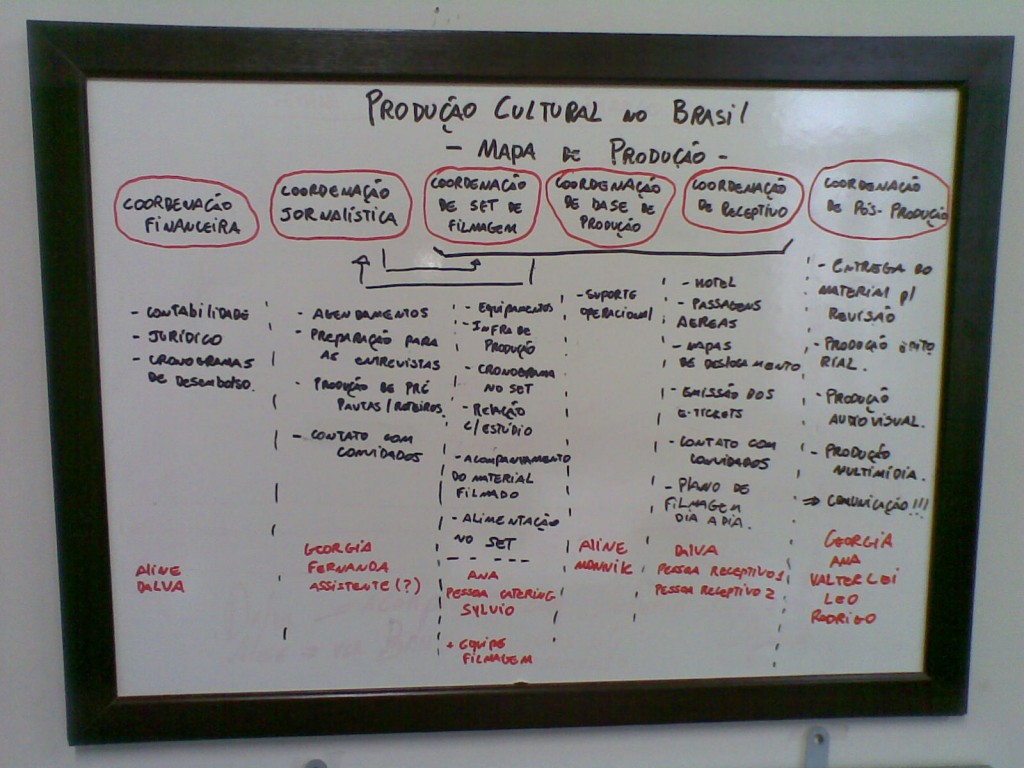 PRODUÇÃO CULTURAL NO BRASIL
- MAPA DE PRODUÇÃO -
COORDENAÇÃO
FINANCEIRA
- CONTABILIDADE
- JURÍDICO
- CRONOGRAMAS
DE DESEMBOLSO.
ALINE
DALVA
COORDENAÇÃO
JORNALÍSTICA
- AGENDAMENTOS
- PREPARAÇÃO PARA
AS ENTREVISTAS
- PRODUÇÃO DE PRÉ
PAUTAS/ROTEIROS
- CONTATO COM
CONVIDADOS
GEORGIA
FERNANDA
ASSISTENTE (?)
COORDENAÇÃO
DE SET DE
FILMAGEM
- EQUIPAMENTOS
- INFRA DE
PRODUÇÃO
- CRONOGRAMA
NO SET
- RELAÇÃO
C/ ESTÚDIO
- ACOMPANTAMENTO
DO MATERIAL
FILMADO
- ALIMENTAÇÃO
NO SET
ANA
PESSOA CATERING
SYLVIO
+ EQUIPE
FILMAGEM
COORDENAÇÃO
DE BASE DE
PRODUÇÃO
- SUPORTE
OPERACIONAL
ALINE
MONNIK
COORDENAÇÃO
DE RECEPTIVO
- HOTEL
- PASSAGENS
AEREAS
- MAPAS
DE DESLOCAMENTO
- EMISSÃO DOS
E-TICKETS
- CONTATO COM
CONVIDADOS
- PLANO DE
FILMAGEM
DIA A DIA.
DALVA
PESSOA RECEPTIVO 1
PESSOA RECEPTIVO 2
COORDENAÇÃO
DE PÓS-PRODUÇÃO
- ENTREGA DO
MATERIAL P/
REVISÃO
- PRODUÇÃO EDITO
RIAL.
- PRODUÇÃO
AUDIOVISUAL.
- PRODUÇÃO
MULTIMÍDIA.
⇒ COMUNICAÇÃO!!!
GEORGIA
ANA
VALTERLEI
LEO
RODRIGO